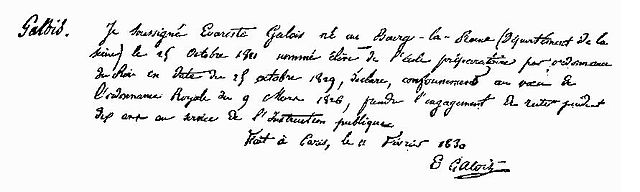 Galois. Je soussigné Evariste Galois né au Bourg-la-Reine (département de la
Seine) le 25 octobre 1811 nommé élève de l'école préparatoire par ordonnance
du Roi en date du 25 octobre 1829, déclare, conformément au vœu de
l'ordonnance Royale du 9 Mars 1826, prendre l'engagement de rester pendant
dix ans au service de l'Instruction publique
Fait à Paris, le 11 Février 1830
E Galois